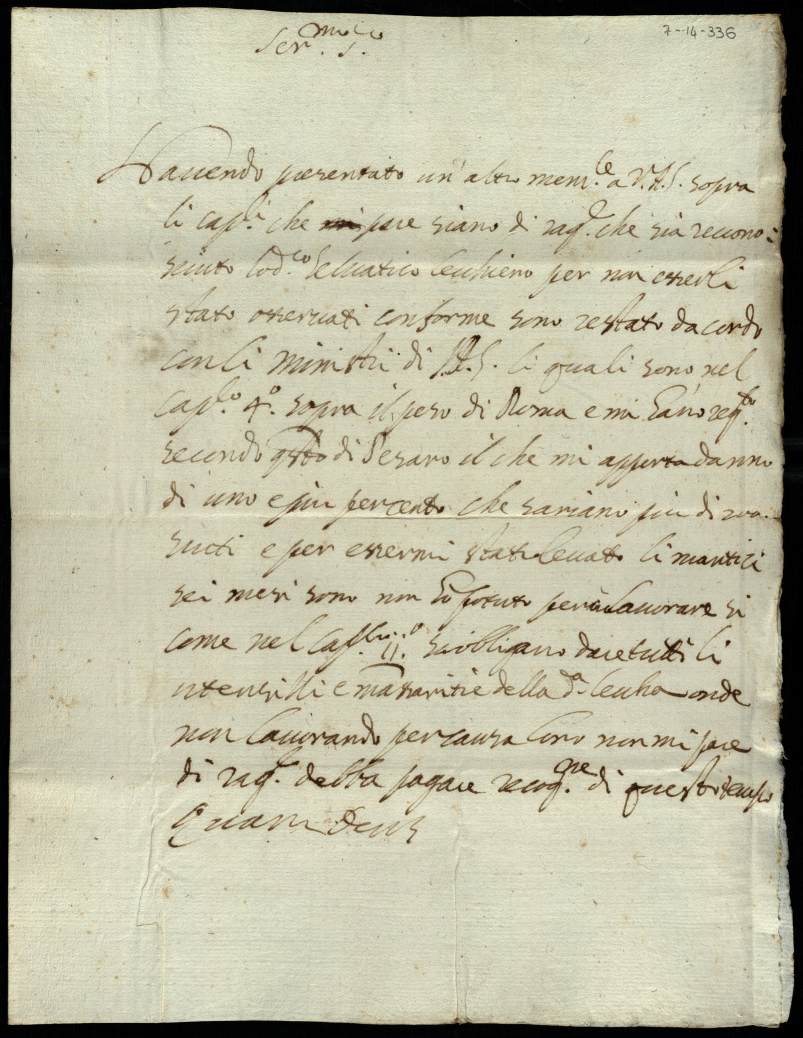 7-14-336
Ser.mo S.o
Havendo presentato un'altro mem.le a V.A.S. sopra
li cap.li che mi pare siano di rag.e che sia recono:
sciuto Lod.co Seluatico Zecchiero per non esserli
stato osseruati conforme sono restato dacordo
con li ministri di V.A.S. li quali sono nel
Cap.lo 4.o sopra il peso di Roma e mi
secondo di Pesaro il che mi apporta danno
di uno e piu per cento che sariano piu di
scuti e per essermi stati leuato li mantici
sei mesi sono non ho potuto lauorare si
come nel Cap. 11.o si obligano dare tutti li
utensilli e massaritie della d.a Zecha onde
non lauorando per causa loro non mi pare
di rag.e debba pagare recog.ne di questo tempo
Quam Deus